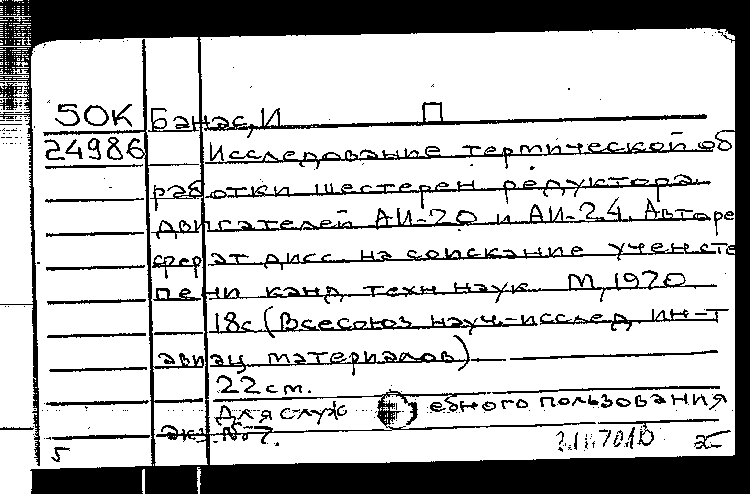 50К Банас, И П
24986 Исследование термической об
работки шестерен редуктора
двигателей АИ-20 и АИ-24. Авторе
ферат дисс. на соискание учен сте
пени канд. техн наук М, 1970
18с (Всесоюз науч.-исслед ин-т
авиац материалов)
22 см.
Для служебного пользования
экз. №7.
5